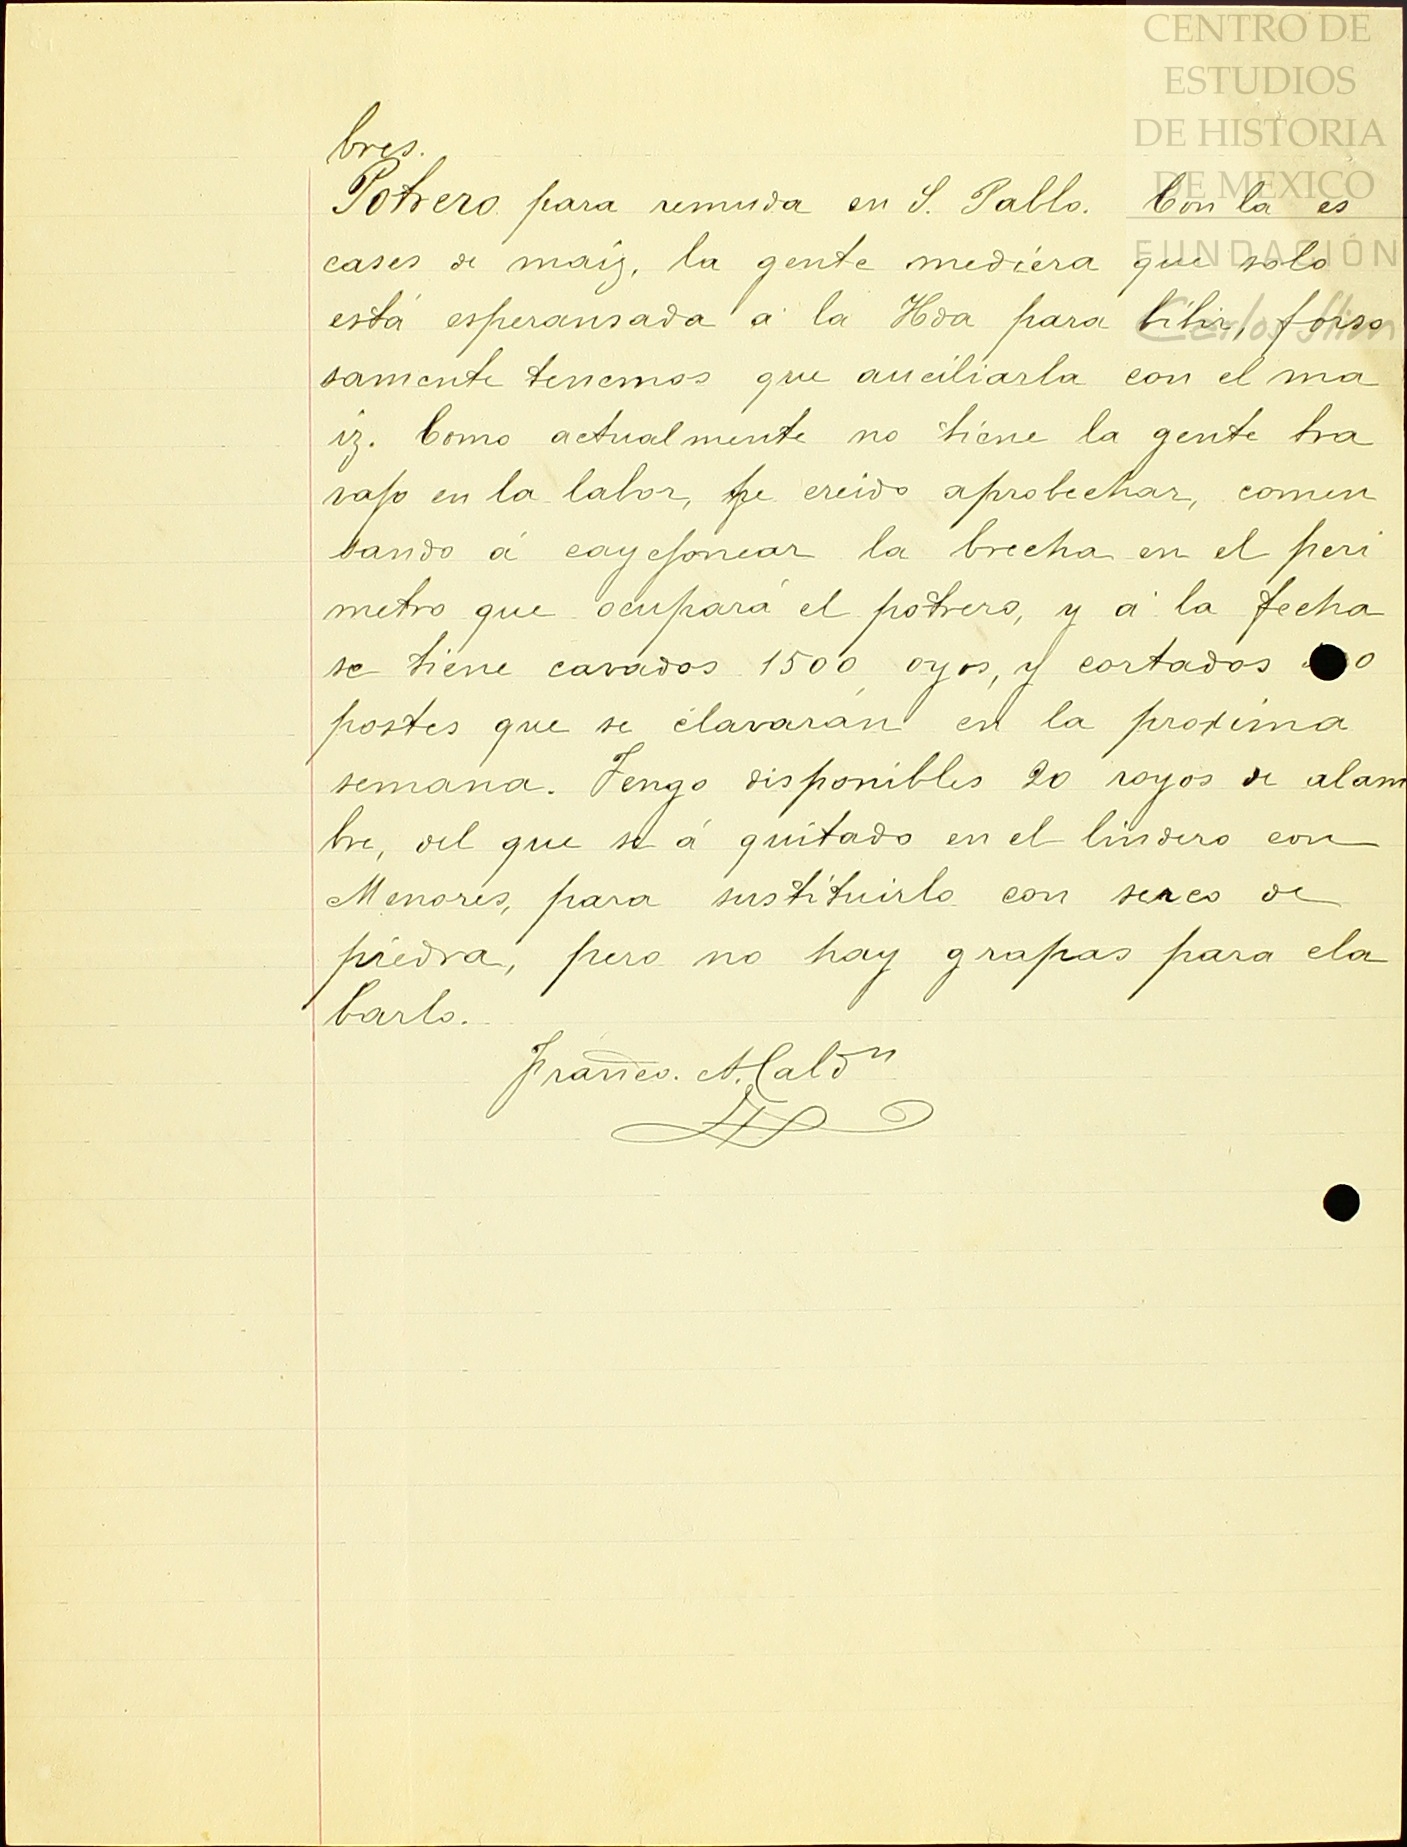 CENTRO DE
ESTUDIOS
DE HISTORIA
DE MEXICO
FUNDACIÓN
Carlos Slim
bres.
Potrero para remuda en S. Pablo. Con la es
cases de maiz, la gente mediera que solo
está esperansada á la Hda para bibir, forso
samente tenemos que auciliarla con el ma
iz. Como actualmente no tiene la gente tra
vajo en la labor, he creido aprobechar, comen
sando á cayejonear la brecha en el peri
metro que ocupará el potrero, y á la fecha
se tiene cavados 1500 oyos, y cortados
postes que se clavarán en la proxima
semana. Tengo disponibles 20 royos de alam
bre, del que se á quitado en el lindero con
Menores, para sustituirlo con serco de
piedra, pero no hay grapas para cla
barlo.
Franco. A. Caldn